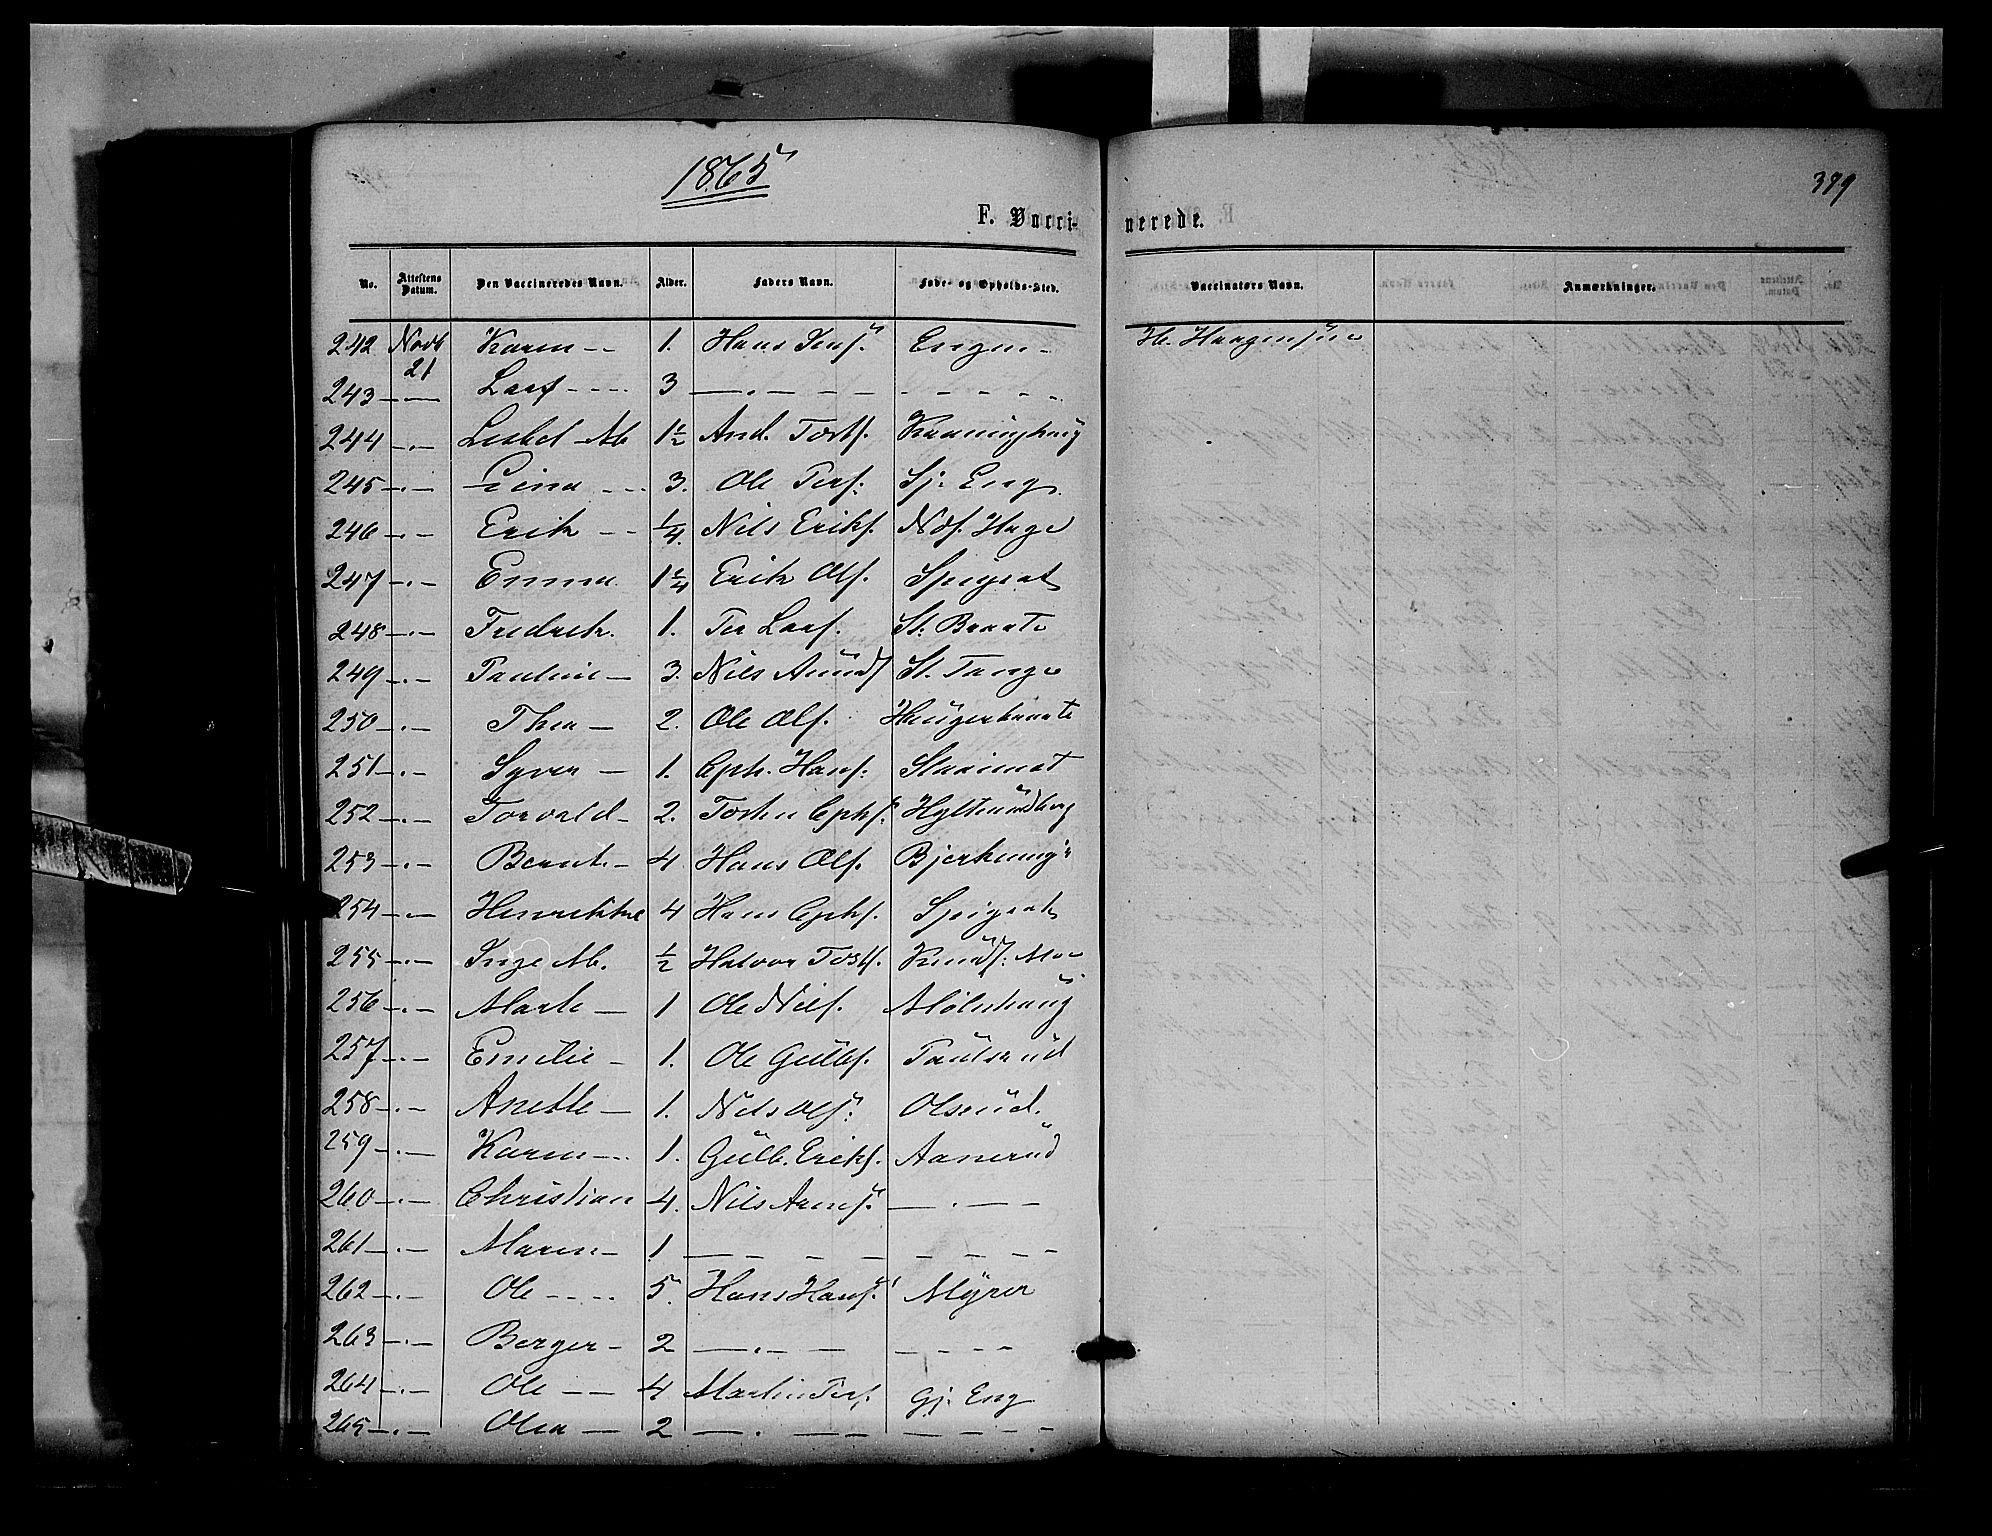 1865
379
F. Vacci-
nerede.
No. Attestens Datum. Den Vaccineredes Navn. Alder. Faders Navn. Føde- og Opholds-Sted. Vaccinators Navn. Anmærkninger.
242 Novb 21 Karen -- 1. Hans Jens. Engen - H. Haagensen
243 -.- Lars ---- 3 -.- - - - - - - -
244 -.- Lisbet M 1½ And. Tosts.
245 -.- Lina --- 3. Ole Pers: Sj: Eng.
246 -.- Erik -- ¼. Nils Eriks. Nds. Hage
247 -.- Emma 1¼ Erik Ols. Spigset
248 -.- Fredrik. 1. Per Lars. St. Braate
249 -.- Pauline - 3. Nils Amunds St. Tange
250 -.- Thea - 2. Ole Ols. Haugerbraate
251 -.- Syver - 1. Cph. Hans:
252 -.- Torvald - 2. Tosten Cphs.
253 -.- Bernt - 4 Hans Ols.
254 -.- Henrikke 4 Hans Cphs. Spigset
255 -.- Inge M. ½ Halvor Tosts. Knuds: Moe
256 -.- Marte - 1 Ole Nils. Mølnhaug
257 -.- Emilie - 1. Ole Gulbs. Paulsrud
258 -.- Anette - 1. Nils Ols. Olsrud.
259 -.- Karen -- 1. Gulb. Eriks. Aanerud
260 -.- Christian 4. Nils Arns. -.- -
261 -.- Maren - 1 - - - - - - - -
262 -.- Ole ---- 5. Hans Hans. Myrer
263 -.- Berger - 2 -.- - - - - - -
264 -.- Ole -- 4 Martin Pers. Gj. Eng
265 -.- Olea - 2 -.- - - - - - -